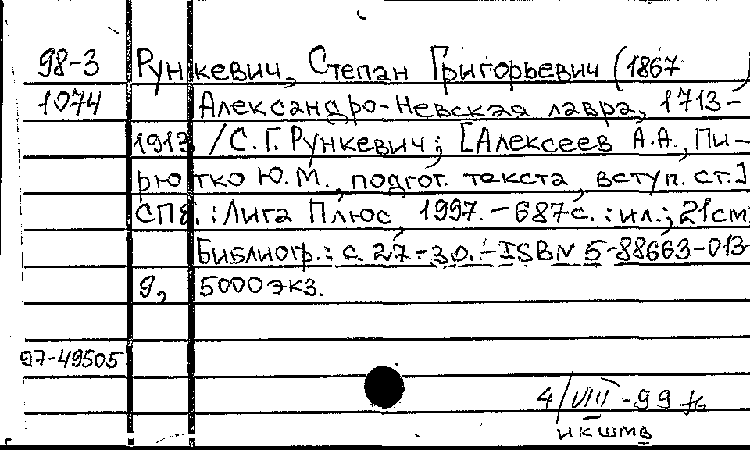 98-3 Рункевич, Степан Григорьевич (1867
1074 Александро-Невская лавра, 1713-
1913 / С. Г. Рункевич; [Алексеев А.А., Пи-
рютко Ю.М., подгот. текста, вступ. ст.]
СПб.: Лига Плюс, 1997. - 687с.: ил.; 21см
Библиогр.: с. 27-30. - ISBN 5-88663-013-
9, 5000 экз.
97-49505
4/VIII-99